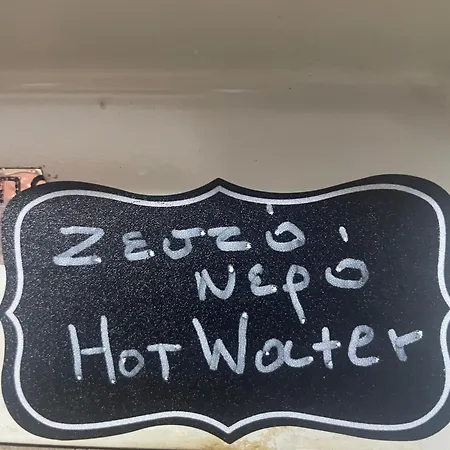 Ζεστό
νερό
Hot Water